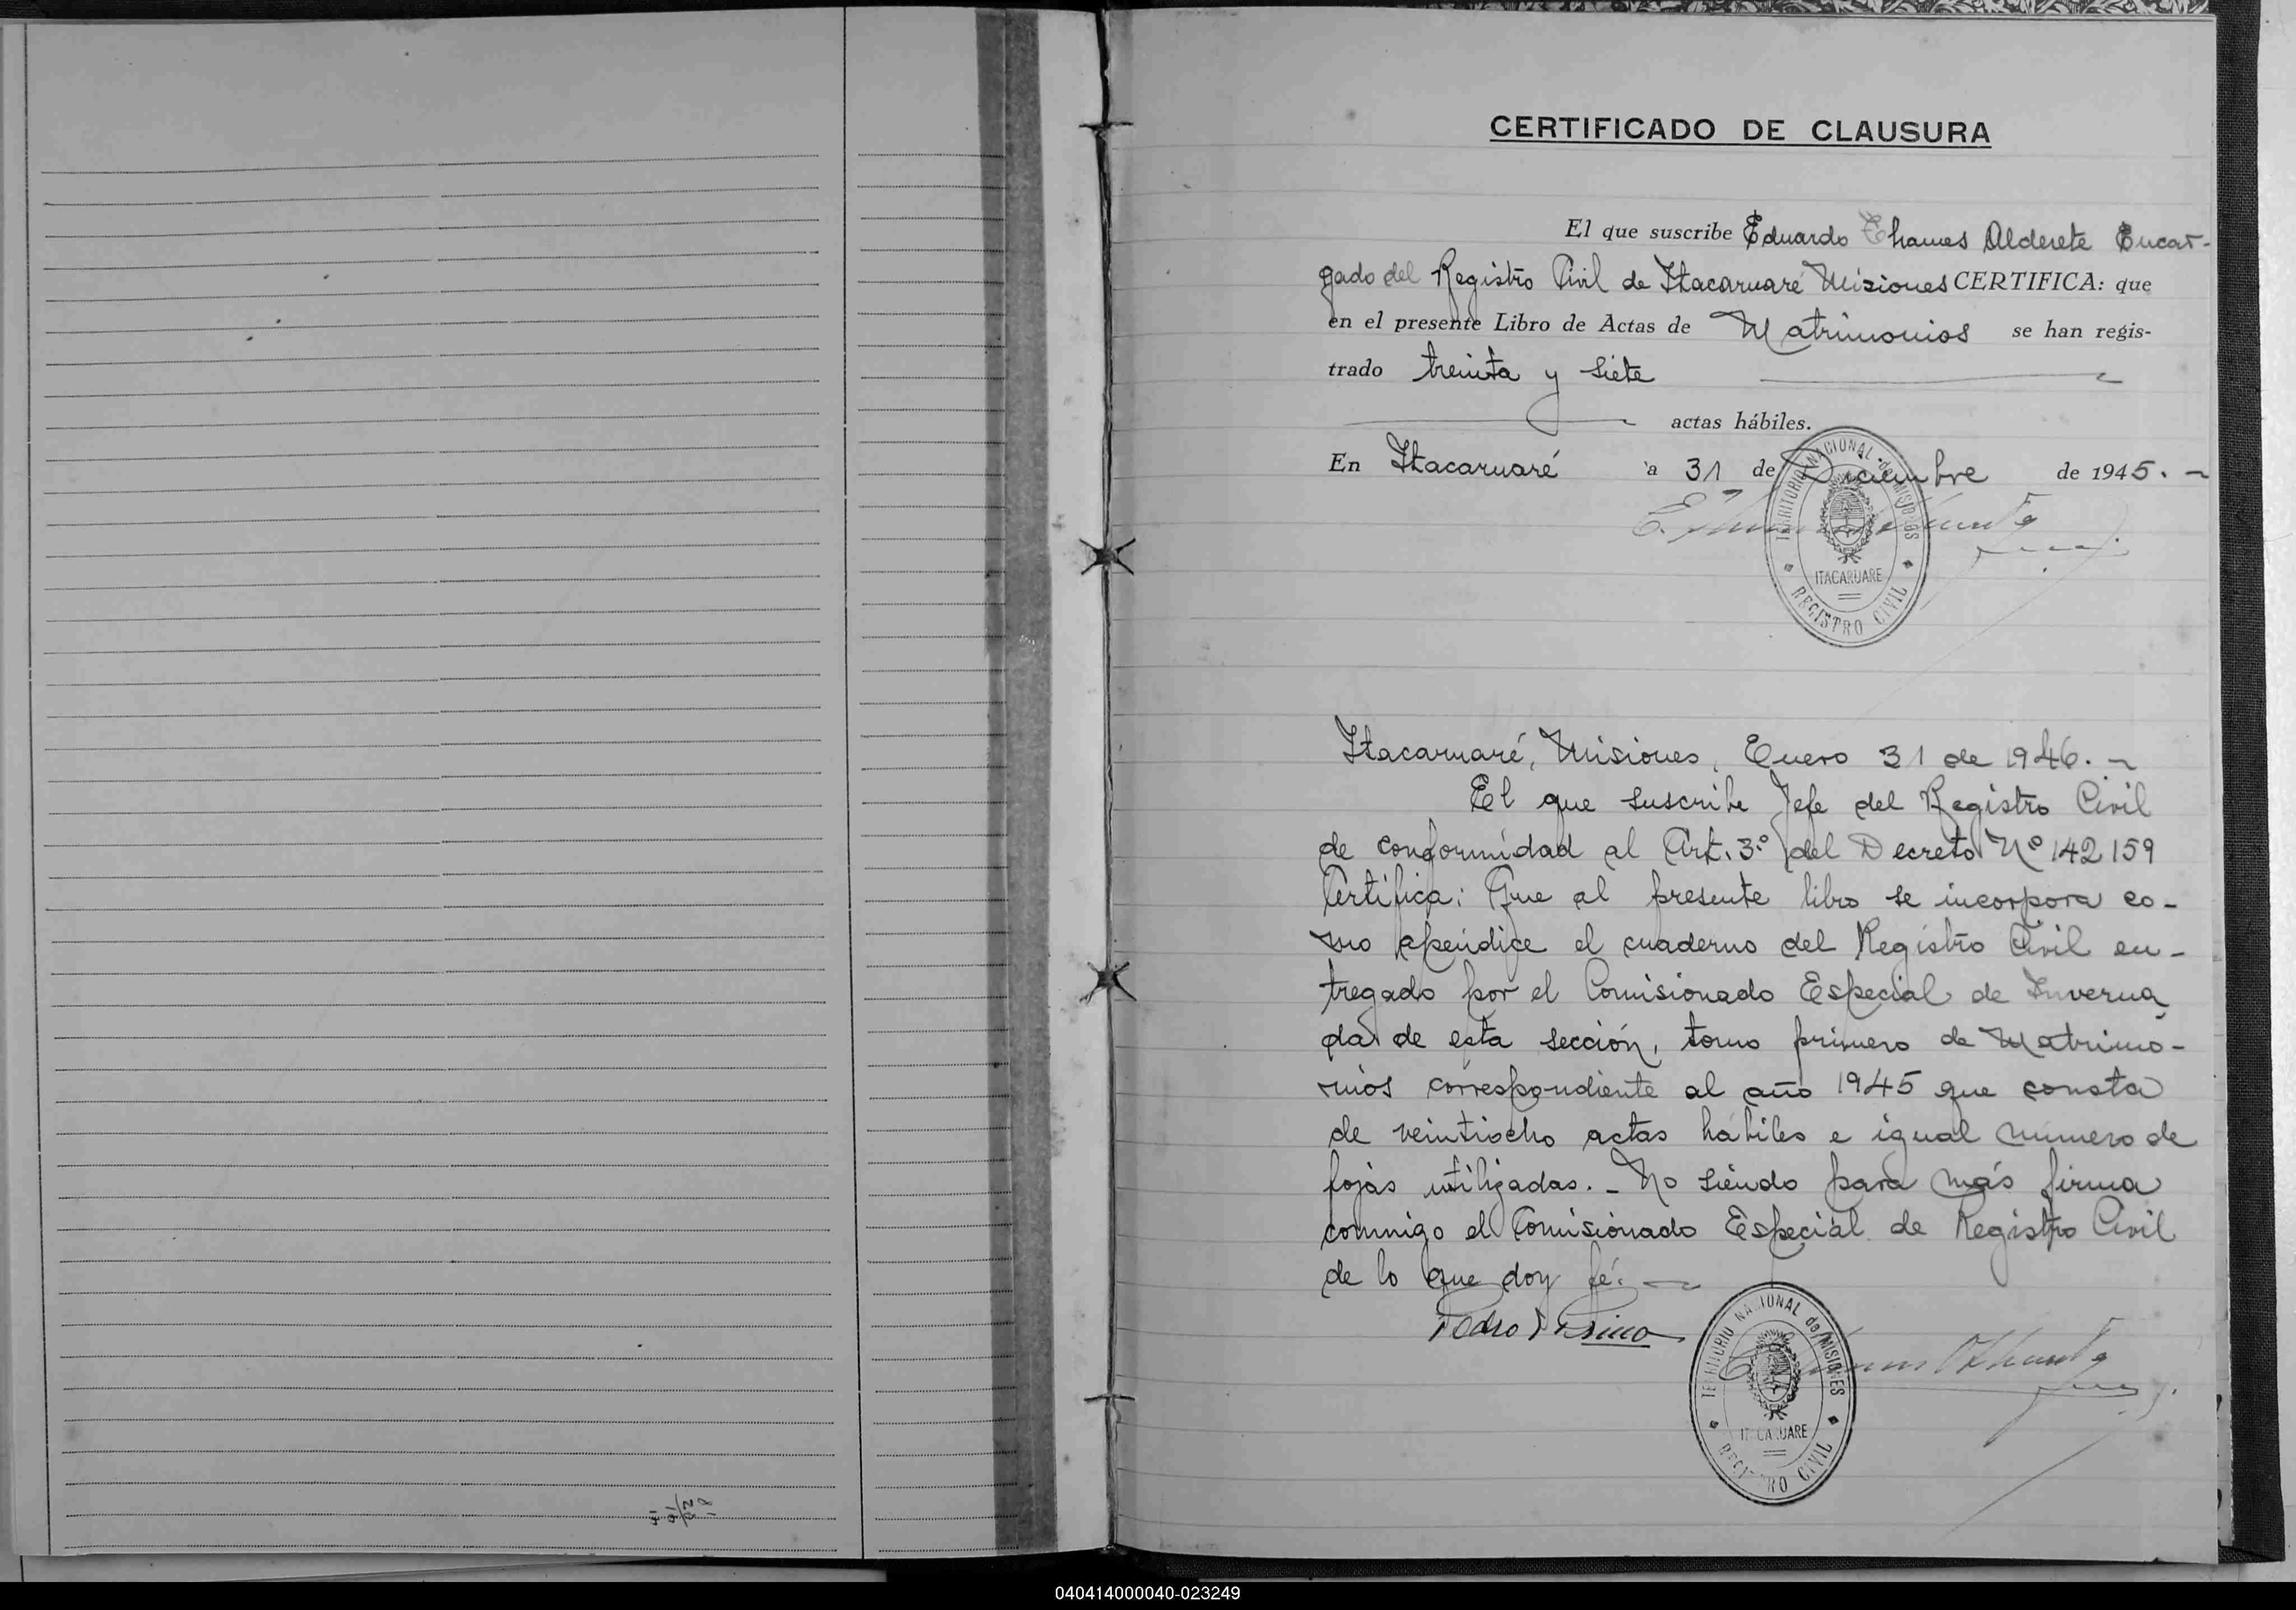 CERTIFICADO DE CLAUSURA
El que suscribe Eduardo Thames Alderete Encar-
gado del Registro Civil de Itacaruaré Misiones CERTIFICA: que
en el presente Libro de Actas de Matrimonios se han regis-
trado treinta y siete
actas hábiles.
En Itacaruaré a 31 de Diciembre de 1945.-
TERRITORIO NACIONAL de MISIONES
ITACARUARE
REGISTRO CIVIL
Itacaruaré, Misiones, Enero 31 de 1946.-
El que suscribe Jefe del Registro Civil
de conformidad al Art. 3º del Decreto Nº 142159
Certifica: Que al presente libro se incorpora co-
mo apéndice el cuaderno del Registro Civil en-
tregado por el Comisionado Especial de Inverna
da de esta sección, tomo primero de Matrimo-
nios correspondiente al año 1945 que consta
de veintiocho actas hábiles e igual número de
fojas utilizadas.- No siendo para más firma
conmigo el Comisionado Especial de Registro Civil
de lo que doy fé.-
Pedro
TERRITORIO NACIONAL de MISIONES
ITACARUARE
REGISTRO CIVIL
040414000040-023249